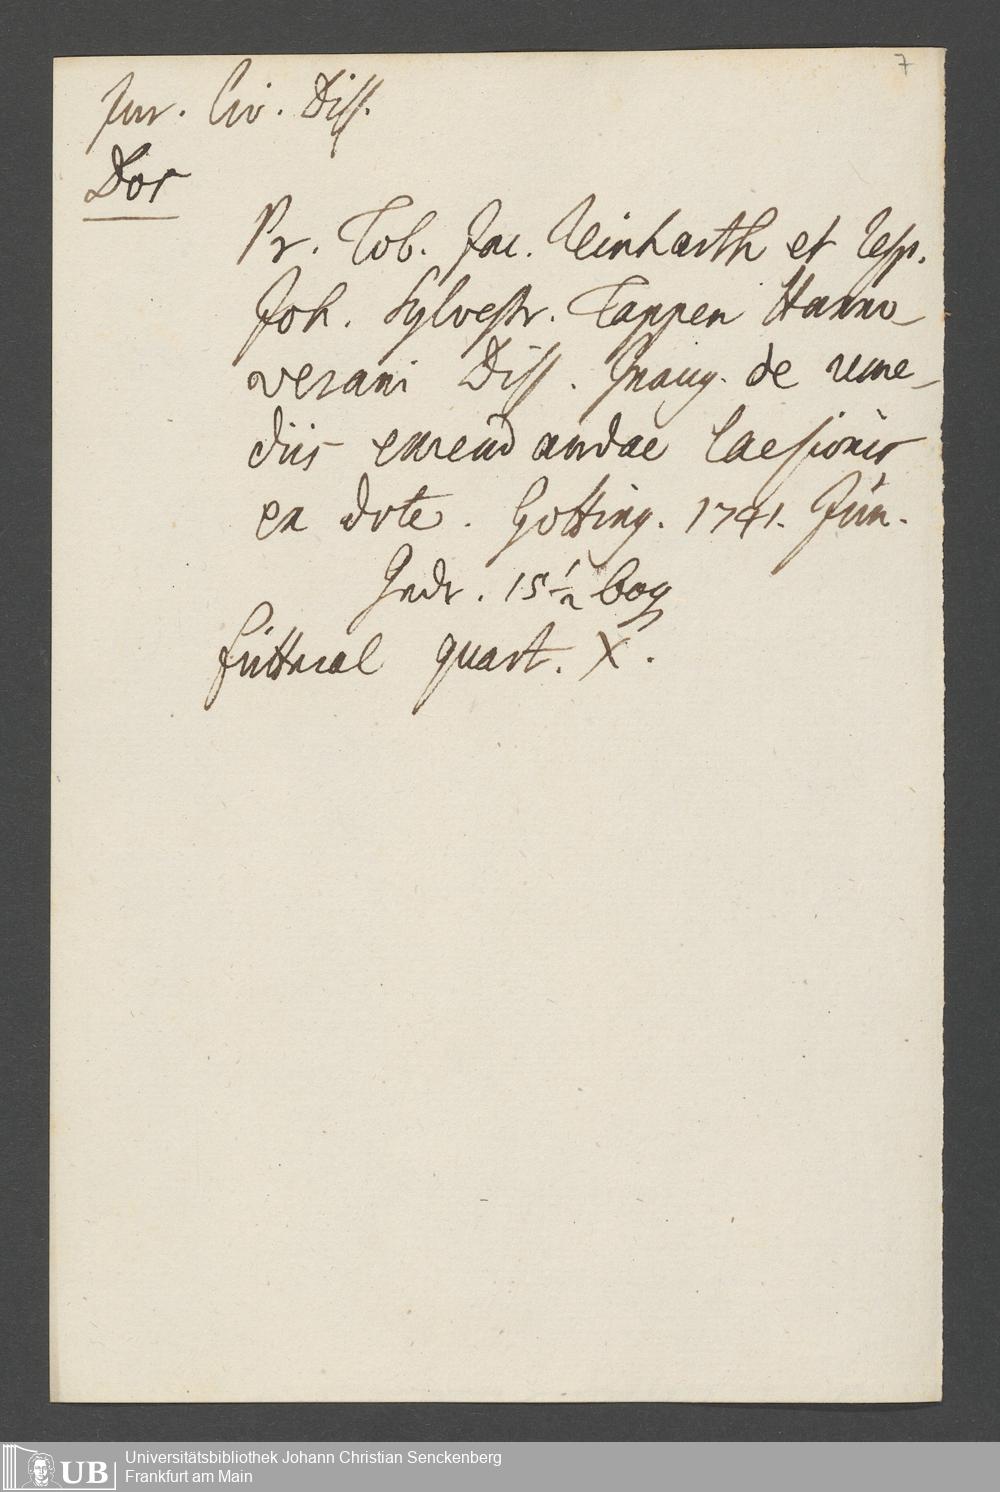 7
Jur. Civ. Diss.
Dos
Pr. Tob. Jac. Reinharth et Resp.
Joh. Sylvestr. Tappen Hanno-
verani Diss. Inaug. de reme-
diis emendandae laesionis
ex dote. Gotting. 1741. Jun.
Gedr. 15 1/2 bog
futteral quart. X.
UB Universitätsbibliothek Johann Christian Senckenberg
Frankfurt am Main